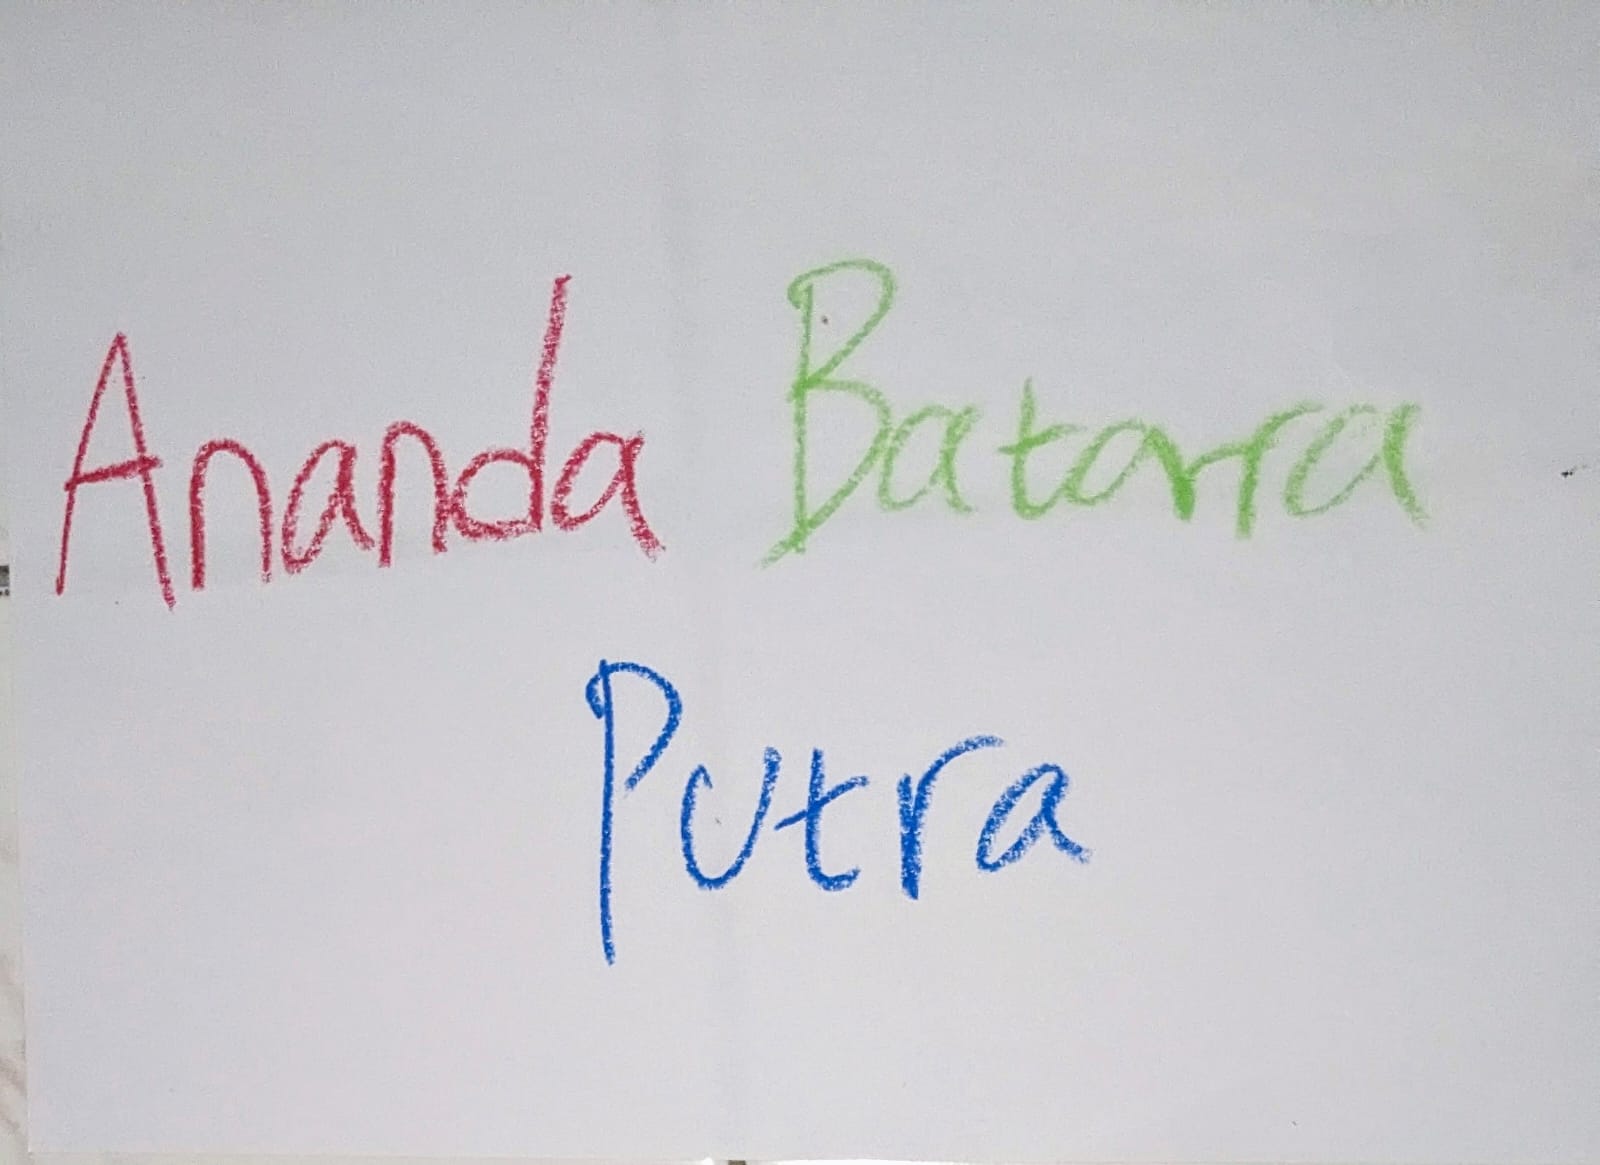 Ananda Batara
Putra